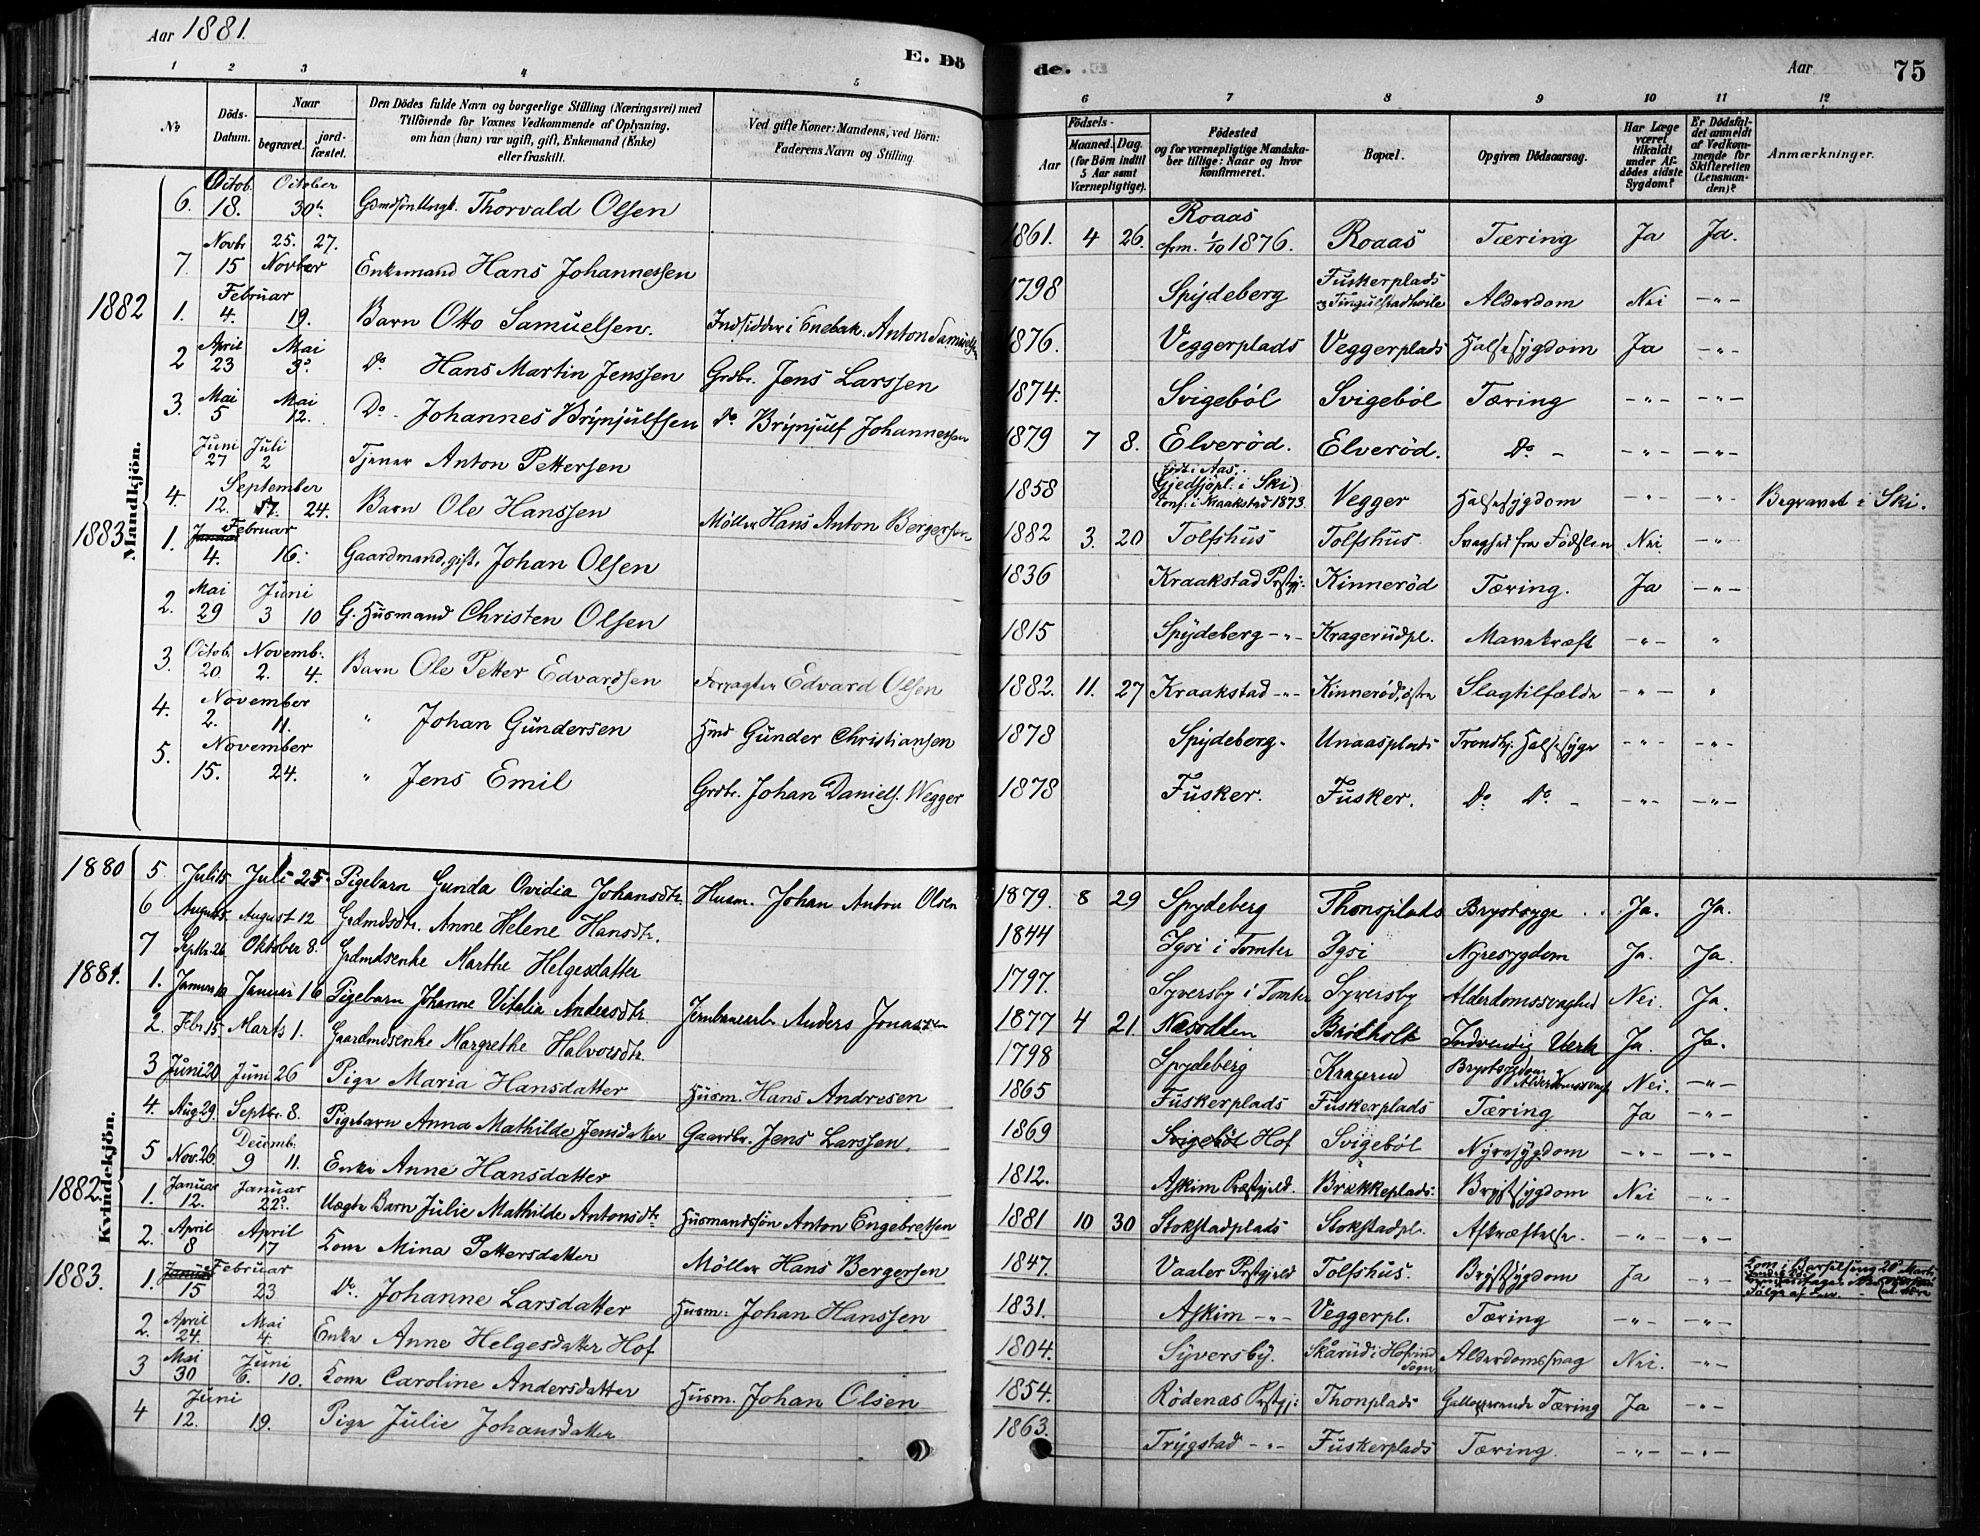 Aar 1881.
E. Dö
de.
Aar
75
1 2 3 4 5 6 7 8 9 10 11 12
No
Döds-Datum.
Naar
begravet.
jord-fæstet.
Den Dödes fulde Navn og borgerlige Stilling (Næringsvei) med
Tilföiende for Voxnes Vedkommende af Oplysning,
om han (hun) var ugift, gift, Enkemand (Enke)
eller fraskilt.
Ved gifte Koner: Mandens, ved Börn:
Faderens Navn og Stilling.
Födsels-
Aar
Maaned. Dag.
(for Börn indtil
5 Aar samt
Værnepligtige).
Födested
og for værnepligtige Mandska-
ber tillige: Naar og hvor
konfirmeret.
Bopæl.
Opgiven Dödsaarsag.
Har Læge
været
tilkaldt
under Af-
dödes sidste
Sygdom?
Er Dödsfal-
det anmeldt
af Vedkom-
mende for
Skifteretten
(Lensman-
den)?
Anmærkninger.
Mandkjön.
6. Octob. 18. October 30te Gaardmandssön Ungk. Thorvald Olsen 1861. 4 26. Roaas cfrm. 1/10 1876. Roaas Tæring Ja Ja.
7. Novbr 15 25. 27. Novber Enkemand Hans Johannessen 1798 Spydeberg Fuskerplads Alderdom Nei -"-
1882 1. Februar 4. 19. Barn Otto Samuelsen. Indsidder i Enebak. Anton Samuelsen 1876. Veggerplads Veggerplads Halsesygdom Ja -"-
2 April 23 Mai 3. Do Hans Martin Jenssen Grdbr. Jens Larssen 1874. Svigeböl Svigeböl Tæring -"- -"-
3. Mai 5 Mai 12. Do - Johannes Brynjulfsen Do Brynjulf Johannessen 1879 7 8. Elveröd. Elveröd. Do - -"- -"-
Juni 27 Juli 2 Tjener Anton Pettersen 1858 födt i Aas. (Gjedsjöpl. i Ski) conf. i Kraakstad 1873. Vegger Halsesygdom -"- -"- Begravet i Ski.
4. September 12. 17. 24. Barn Ole Hanssen Møller Hans Anton Bergersen 1882 3. 20 Tolfshus Tolfshus Svaghed fra Födslen Nei -"-
1883 1. Januar Februar 4. 16. Gaardmand, gift, Johan Olsen 1836 Kraakstad Prstgj: Kinneröd Tæring. Ja -"-
2. Mai 29 Juni 3 10 G. Husmand Christen Olsen 1815 Spydeberg -"- Kragerudpl. Mavekræft -"- "
3. Octob. 20. Novemb. 2. 4. Barn Ole Petter Edvardsen Forpagter Edvard Olsen 1882. 11. 27 Kraakstad -"- Kinneröd, östre Slagtilfælde -"- "
4. November 2. 11. " Johan Gundersen Hmd Gunder Christiansen 1878 Spydeberg. Unaasplads Trondhj. Halssyge -"- -"-
5. November 15. 24. " Jens Emil Grdbr. Johan Daniels. Wegger 1878 Fusker. Fusker. Do Do - -"- -"-
Kvindekjön.
1880 5 Juli 15 Juli 25 Pigebarn Gunda Ovidia Johansdtr. Husm. Johan Anton Olsen 1879. 8 29 Spydeberg Thonsplads Brystsyge Ja. Ja.
6 August 5. August 12 Grdmdsdtr. Anne Helene Hansdtr. 1844 Igsi i Tomter Igsi Nyresygdom Ja. Ja.
7 Septbr. 26 Oktober 8. Grdmdsenke Marthe Helgesdatter 1797. Syversby i Tomter Syversby Alderdomssvaghed Nei. Ja.
1881. 1. Januar 10 Januar 16 Pigebarn Johanne Vitalia Andersdtr. Jernbanearb. Anders Jonassen 1877 4 21 Næsodden Brödholt Indvendig Værk Ja. Ja.
2. Febr 15. Marts 1. Gaardmdsenke Margrethe Halvorsdtr. 1798 Spydeberg Kragerud Brystsygdom Alderdomssvagh. Nei. -"-
3 Juni 20 Juni 26 Pige Maria Hansdatter Husm. Hans Andresen 1865 Fuskerplads Fuskerplads Tæring Ja -"-
4. Aug. 29. Septbr. 8. Pigebarn Anna Mathilde Jensdatter Gaardbr. Jens Larssen. 1869 Svigeböl Hof Svigeböl Nyresygdom -"- -"-
5 Nov. 26 Decemb. 9 11. Enke Anne Hansdatter 1812. Askim Præstgjeld. Brækkeplads. Brystsygdom Nei -"-
1882. 1. Januar 12. Januar 22. Uægte Barn Julie Mathilde Antonsdtr. Husmandssön Anton Engebretsen 1881 10 30 Stokstadplads Stokstadpl. Afkræftelse. -"- -"-
2. April 8 April 17 Kone Mina Pettersdatter Møller Hans Bergersen 1847. Vaaler Prstgjeld Tolfshus. Brystsygdom Ja -"- Kom i Barselseng 28 Marts
1883. 1. Januar Februar 15 23 Do. Johanne Larsdatter Husm: Johan Hanssen 1831. Askim -"- Veggerpl. Tæring -"- -"-
2. April 24. Mai 4. Enke Anne Helgesdatter Hof 1804. Syversby. Skårud i Hovind Sogn Alderdomssvag Nei. -"-
3 Mai 30 Juni 6. 10. Kone Caroline Andersdatter Husm. Johan Olsen 1854. Rödenæs Prstgj: Thonplads Galloperende Tæring Ja -"-
4 Juni 12. 19. Pige Julie Johansdatter 1863. Trygstad -"- Fuskerplads Tæring. -"- -"-